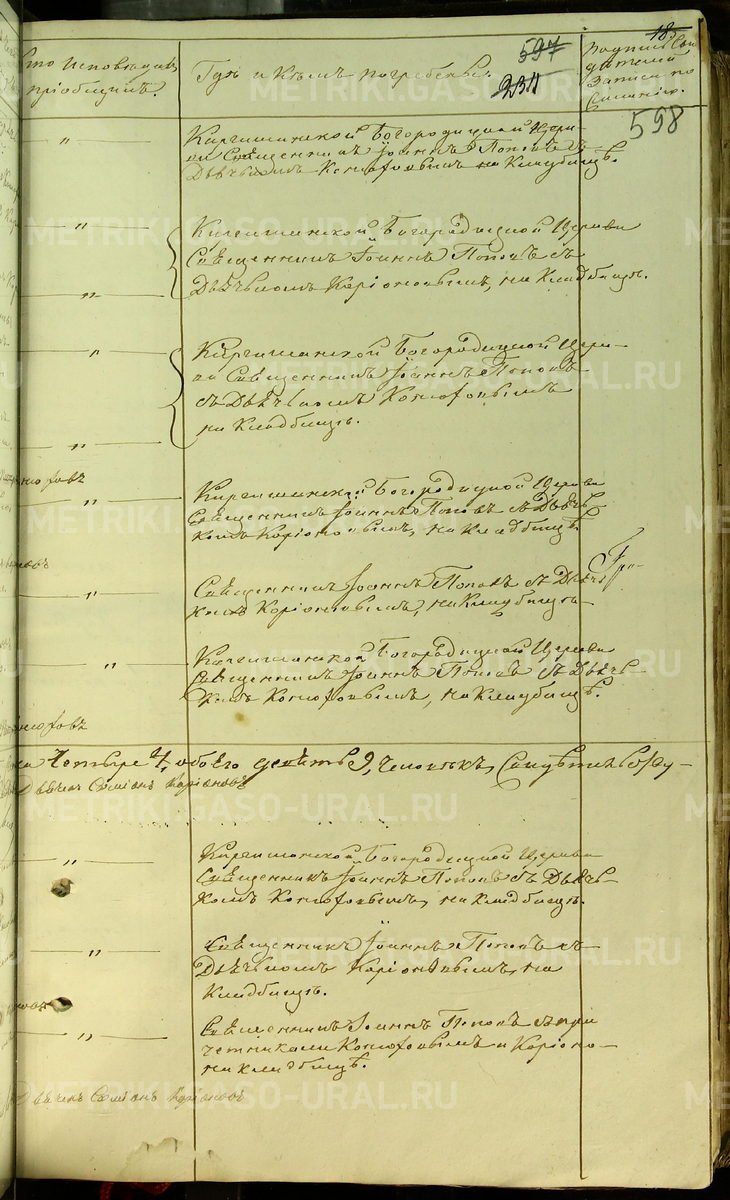 18
597
231
598
Кто исповедавъ
пріобщилъ.
Гдѣ и Кѣмъ погребенъ
подпись Сви
дѣтелей
Записи по
желанію.
Киргишанской Богородицкой Церк-
ви Священникъ Іоаннъ Поповъ съ
Дьячькомъ Конюховымъ на Кладбищѣ.
Киргишанской Богородицкой Церкви
Священникъ Іоаннъ Поповъ съ
Дьячькомъ Каріоновымъ, на Кладбищѣ.
Киргишанской Богородицкой Церк-
ви Священникъ Іоаннъ Поповъ
съ Дьячькомъ Конюховымъ
на Кладбищѣ.
Киргишанской Богородицкой Церкви
Священникъ Іоаннъ Поповъ съ Дьячь-
комъ Каріоновымъ, на Кладбищѣ.
Священникъ Іоаннъ Поповъ съ Дьячь-
комъ Каріоновымъ, на Кладбищѣ
Гри-
Киргишанской Богородицкой Церкви
Священникъ Іоаннъ Поповъ съ Дьячь-
комъ Конюховымъ, на Кладбищѣ.
Четыре 4, обоего девять 9, Человѣкъ,
Дьячекъ Симіонъ Каріоновъ
Киргишанской Богородицкой Церкви
Священникъ Іоаннъ Поповъ съ Дьячь-
комъ Конюховымъ, на Кладбищѣ.
Священникъ Іоаннъ Поповъ съ
Дьячькомъ Каріоновымъ на
Кладбищѣ.
Священникъ Іоаннъ Поповъ съ при
четниками Конюховымъ и Каріоно-
на кладбищѣ.
Дьячекъ Симіонъ Каріоновъ
METRIKI.GASO-URAL.RU